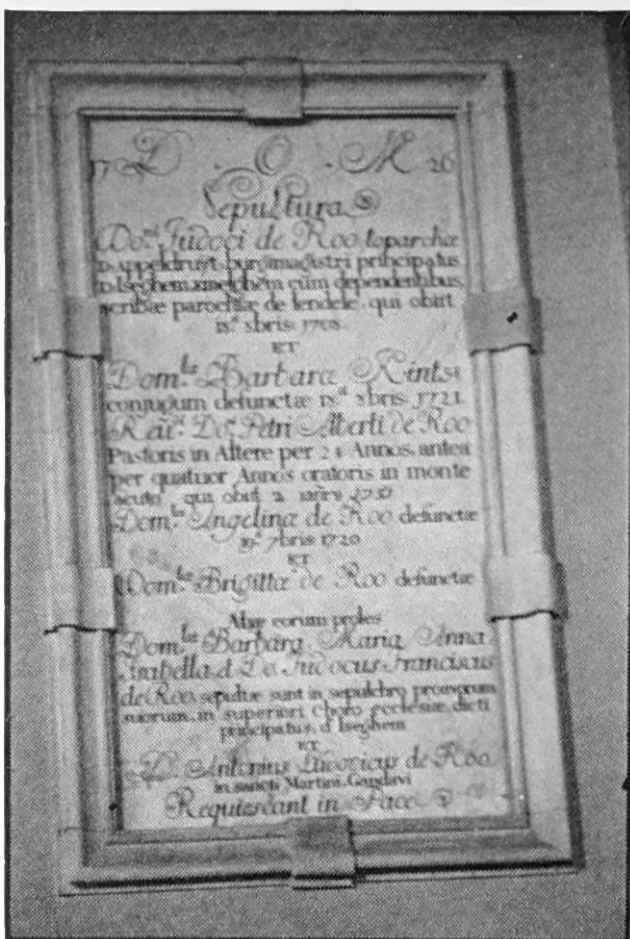 17 D . O . M 26
Sepultura
Do.ni Judoci de Roo toparchæ
D'appeldruyt, burgimagistri principatus
D'Iseghem, emelghem cum dependentibus,
scribæ parochiæ de lendele, qui obiit
xbris 1708.
ET
Dom.læ Barbara Kints
conjugum defunctæ xbris 1721
Petri Alberti de Roo
Pastoris in Altere per 24 Annos, antea
per quatuor Annos oratoris in monte
acuto, qui obiit 2
Dom.læ Angelinæ de Roo defunctæ
7bris 1720
ET
Dom.læ Brigittæ de Roo defunctæ
Aliæ eorum proles
Dom.læ Barbara, Maria Anna
Isabella et Do. Judocus Franciscus
de Roo sepultæ sunt in sepulchro proavorum
suorum, in superiori Choro ecclesiæ dicti
principatus, d'Iseghem
ET
D. Antonius Ludovicus de Roo
in sancti Martini Gandavi
Requiescant in Pace